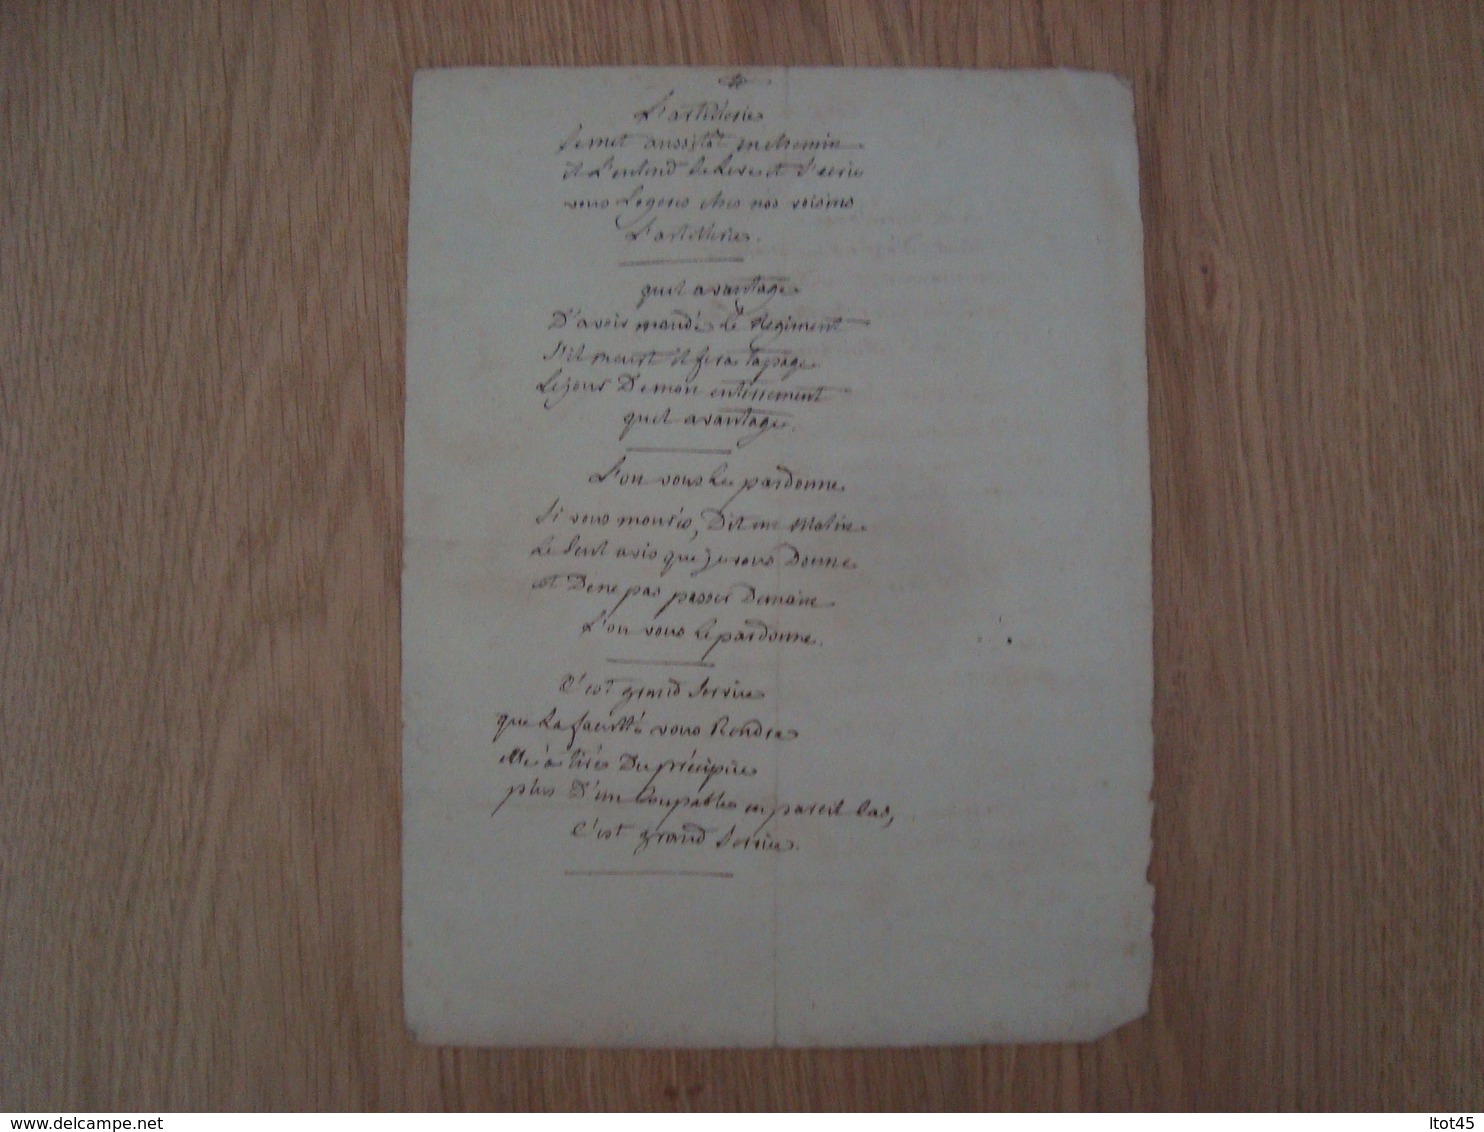 L'artillerie
se met aussitôt en chemin
il l'entend se leve et s'ecrie
vous logerés chés nos voisins
L'artillerie.
quel avantage
D'avoir mandé le Regiment
s'il meurt il fera tapage
Le jour De mon enterrement
quel avantage.
L'on vous le pardonne
Si vous mourés, Dit un Malin
Le seul avis que je vous Donne
est De ne pas passer Demain
L'on vous le pardonne.
C'est grand service
que La faculté vous Rend
Elle a tiré Du précipice
plus D'un Coupable en pareil cas,
C'est grand service.
ltot45
delcampe.net